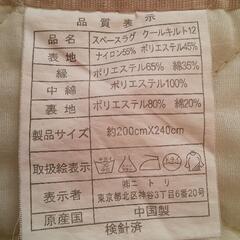 品質表示
品名 スペースラグ クールキルト12
表地 ナイロン55% ポリエステル45%
縁 ポリエステル65% 綿35%
中綿 ポリエステル100%
裏地 ポリエステル80% 綿20%
製品サイズ 約200cmX240cm
取扱絵表示
表示者 ㈱ニトリ
東京都北区神谷3丁目6番20号
原産国 中国製
検針済